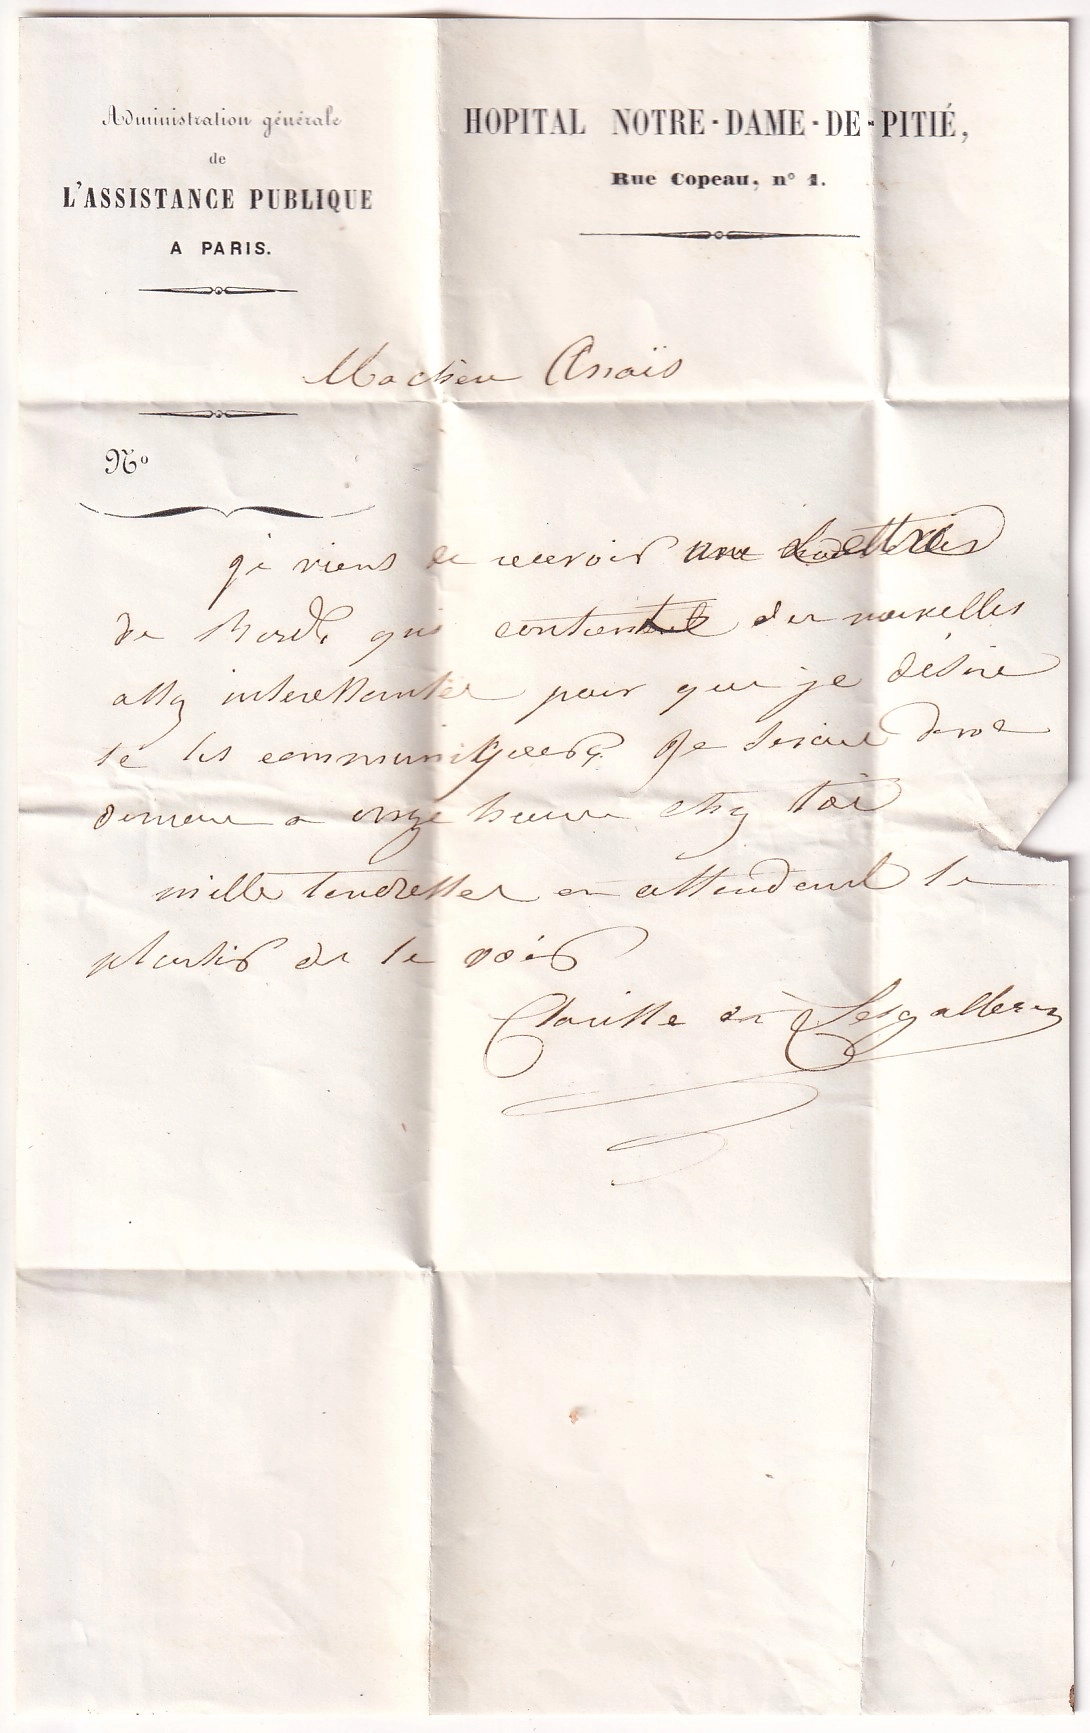 Administration générale
de
L'ASSISTANCE PUBLIQUE
A PARIS.
HOPITAL NOTRE-DAME-DE-PITIÉ,
Rue Copeau, n° 1.
Ma chère Anaïs
N°
je viens de recevoir une Lettre
de qui contient des nouvelles
assez interessantes pour que je désire
te les communiquer. Je serai donc
demain a onze heure chez toi
mille tendresses en attendant le
plaisir de te voir
de